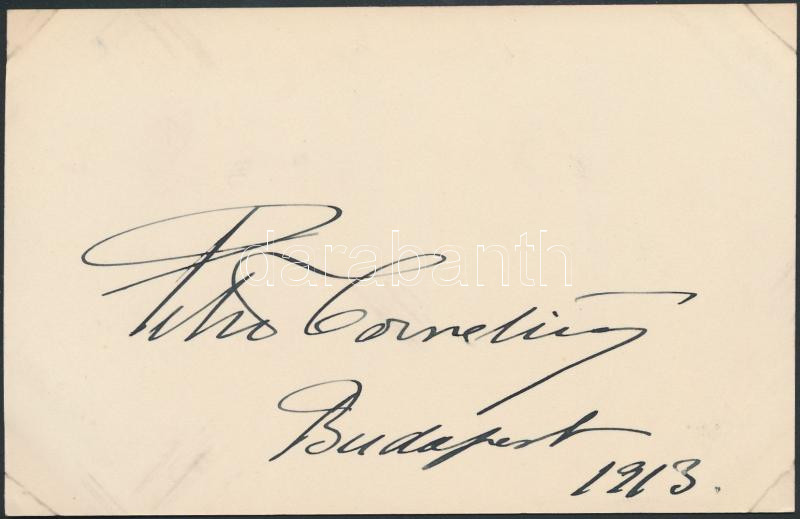 Peter Cornelius
darabanth
Budapest
1913.